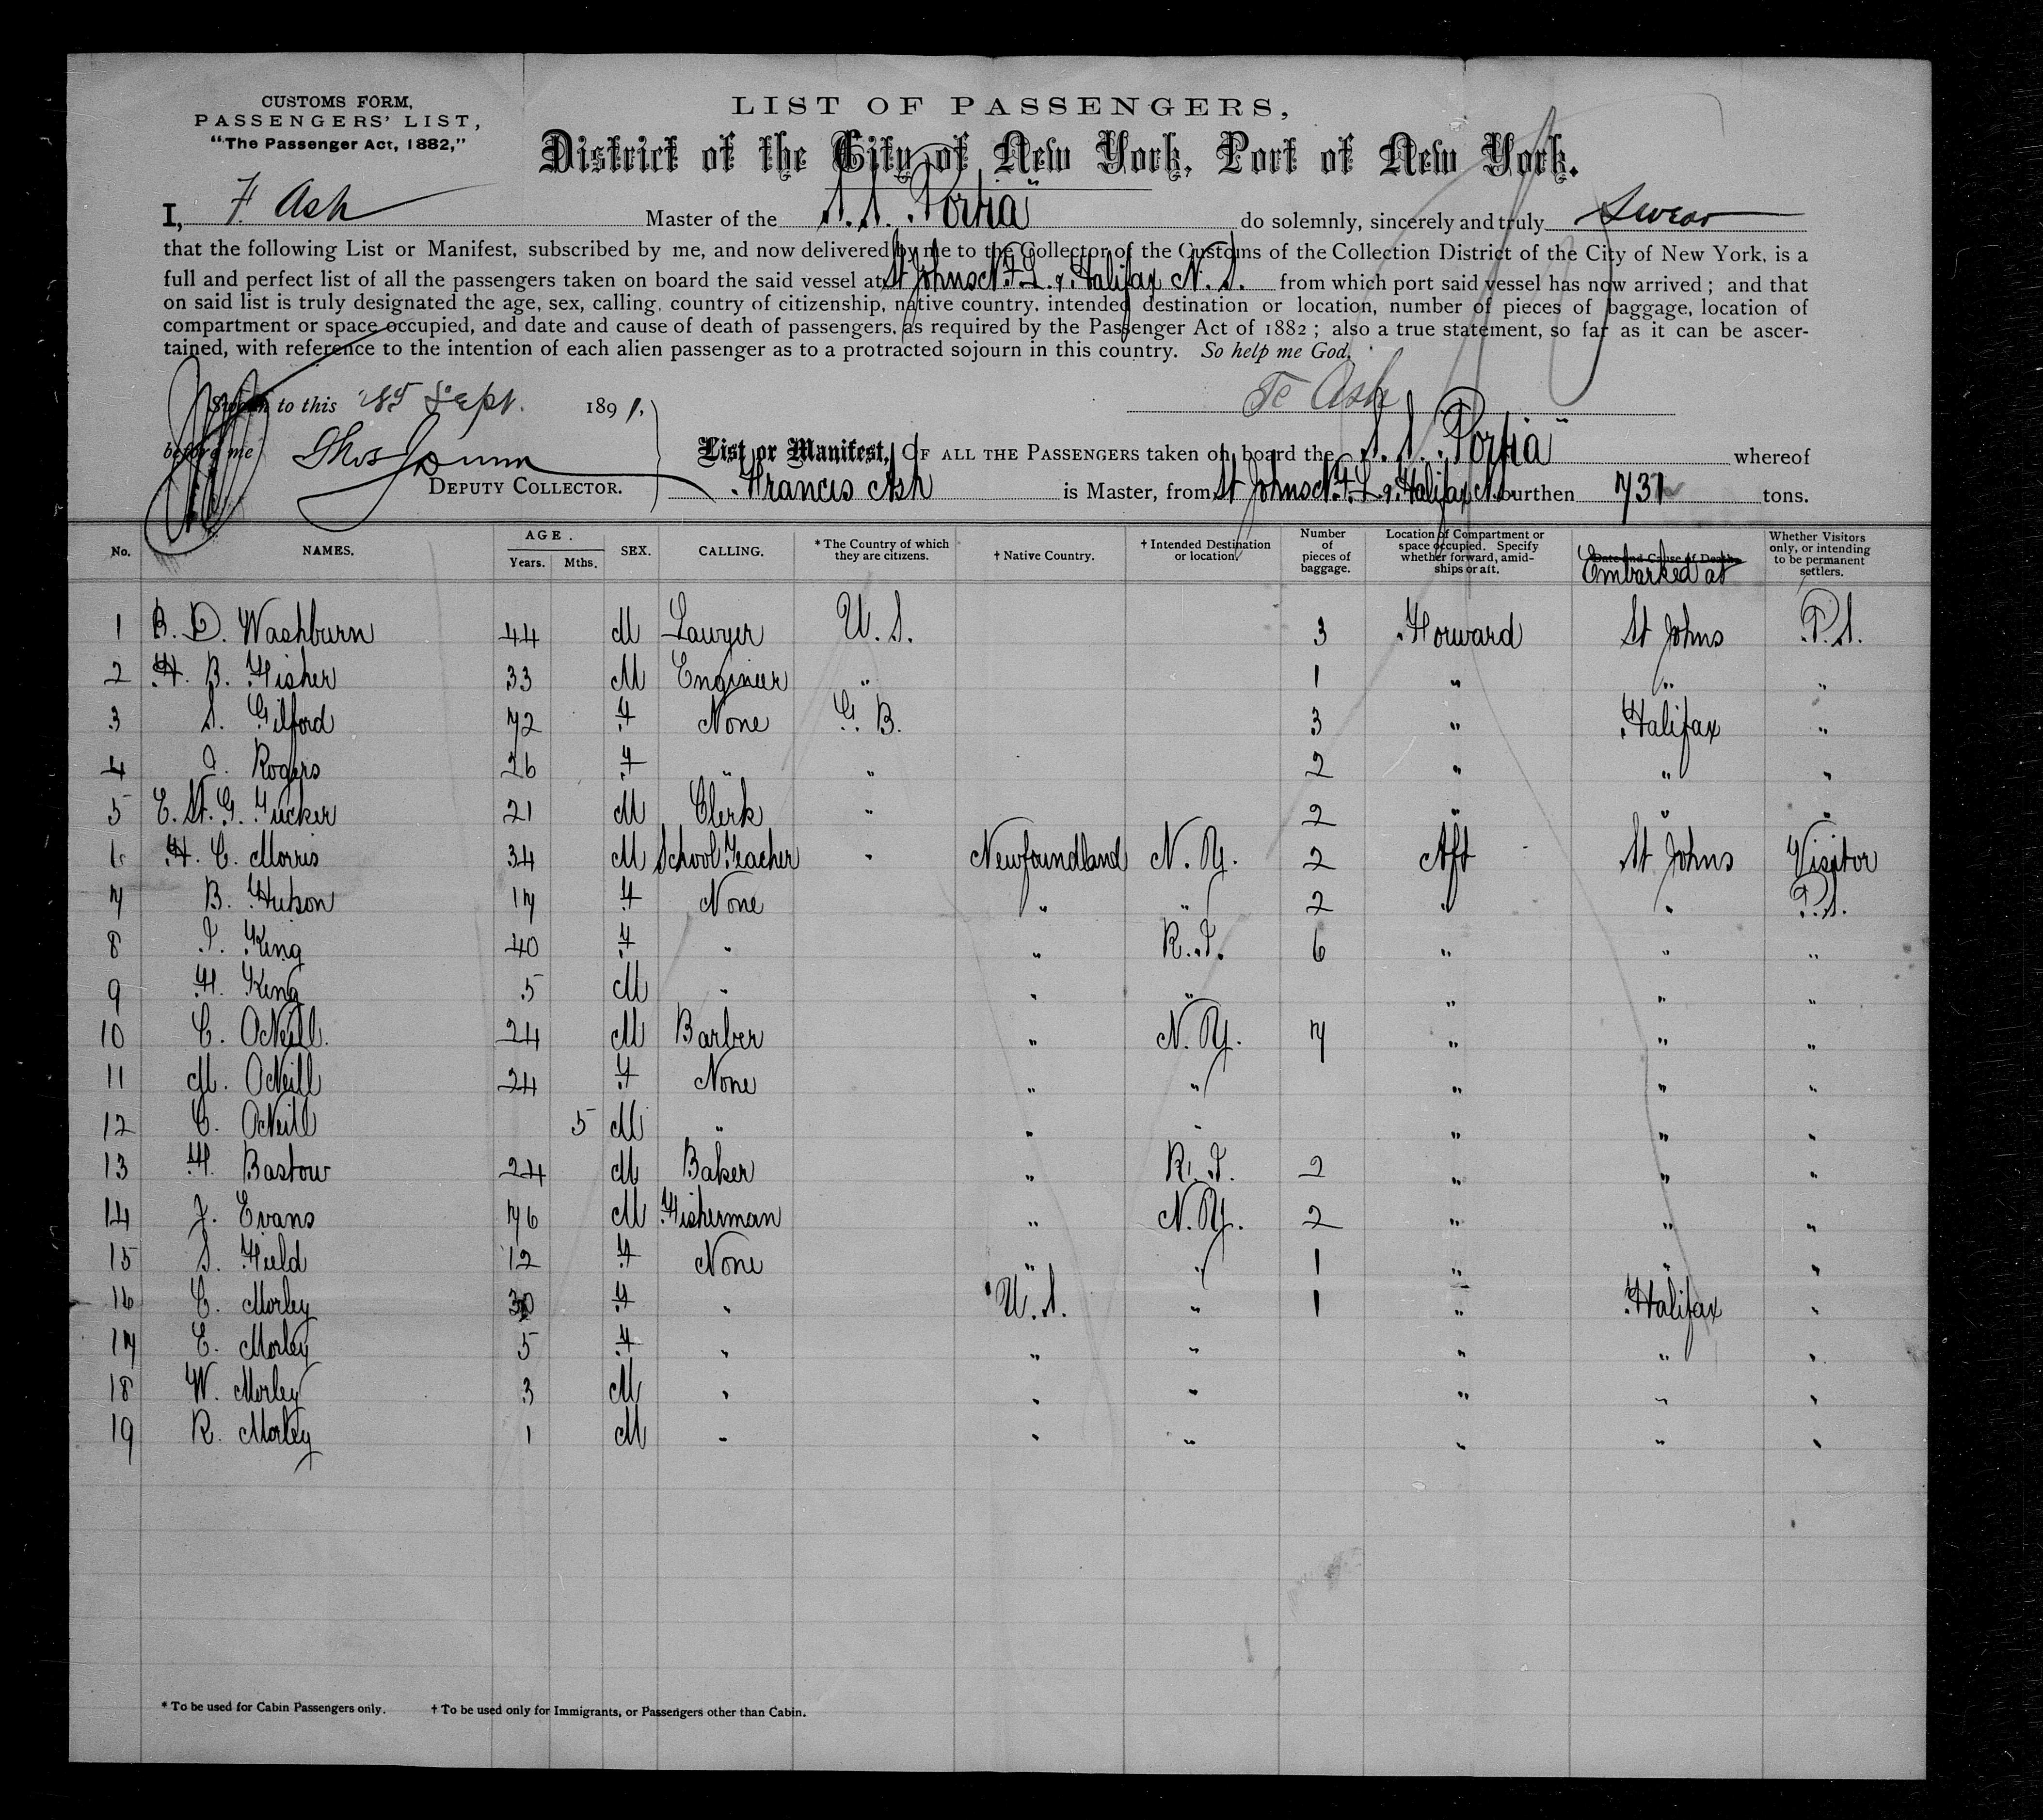 CUSTOMS FORM,
PASSENGERS' LIST,
"The Passenger Act, 1882,"
LIST OF PASSENGERS,
District of the City of New York, Port of New York.
I, F. Ash Master of the S.S. "Portia" do solemnly, sincerely and truly Swear
that the following List or Manifest, subscribed by me, and now delivered by me to the Collector of the Customs of the Collection District of the City of New York, is a
full and perfect list of all the passengers taken on board the said vessel at St Johns N.F.L. & Halifax N.S. from which port said vessel has now arrived; and that
on said list is truly designated the age, sex, calling, country of citizenship, native country, intended destination or location, number of pieces of baggage, location of
compartment or space occupied, and date and cause of death of passengers, as required by the Passenger Act of 1882; also a true statement, so far as it can be ascer-
tained, with reference to the intention of each alien passenger as to a protracted sojourn in this country. So help me God.
Sworn to this Sept. 1891,
Ash
before me Thos
DEPUTY COLLECTOR.
List or Manifest, OF ALL THE PASSENGERS taken on board the S.S. "Portia" whereof
Francis Ash is Master, from St Johns N.F.L. & Halifax N.S. burthen 731 tons.
No. NAMES. AGE. Years. Mths. SEX. CALLING. *The Country of which they are citizens. † Native Country. † Intended Destination or location. Number of pieces of baggage. Location of Compartment or space occupied. Specify whether forward, amid-ships or aft. Date and Cause of Death. Embarked at Whether Visitors only, or intending to be permanent settlers.
1 B. D. Washburn 44 M Lawyer U.S. 3 Forward St Johns P.S.
2 H. B. Fisher 33 M Engineer " 1 " " "
3 S. Gilford 72 F None G.B. 3 " Halifax "
4 Rogers 26 F " " 2 " " "
5 E. St. G. Tucker 21 M Clerk " 2 " " "
6 H. C. Morris 34 M School Teacher " Newfoundland N.Y. 2 Aft St Johns Visitor
7 B. 17 F None " " 2 " " P.S.
8 King 40 F " " R.I. 6 " " "
9 H. King 5 M " " " " " "
10 C. O'Neill 24 M Barber " N.Y. 7 " " "
11 M. O'Neill 24 F None " " " " "
12 C. O'Neill 5 M " " " " " "
13 H. Bastow 24 M Baker " R.I. 2 " " "
14 J. Evans 76 M Fisherman " N.Y. 2 " " "
15 S. Field 12 F None " " 1 " " "
16 C. Morley 30 F " U.S. " 1 " Halifax "
17 E. Morley 5 F " " " " " "
18 W. Morley 3 M " " " " " "
19 R. Morley 1 M " " " " " "
* To be used for Cabin Passengers only. † To be used only for Immigrants, or Passengers other than Cabin.